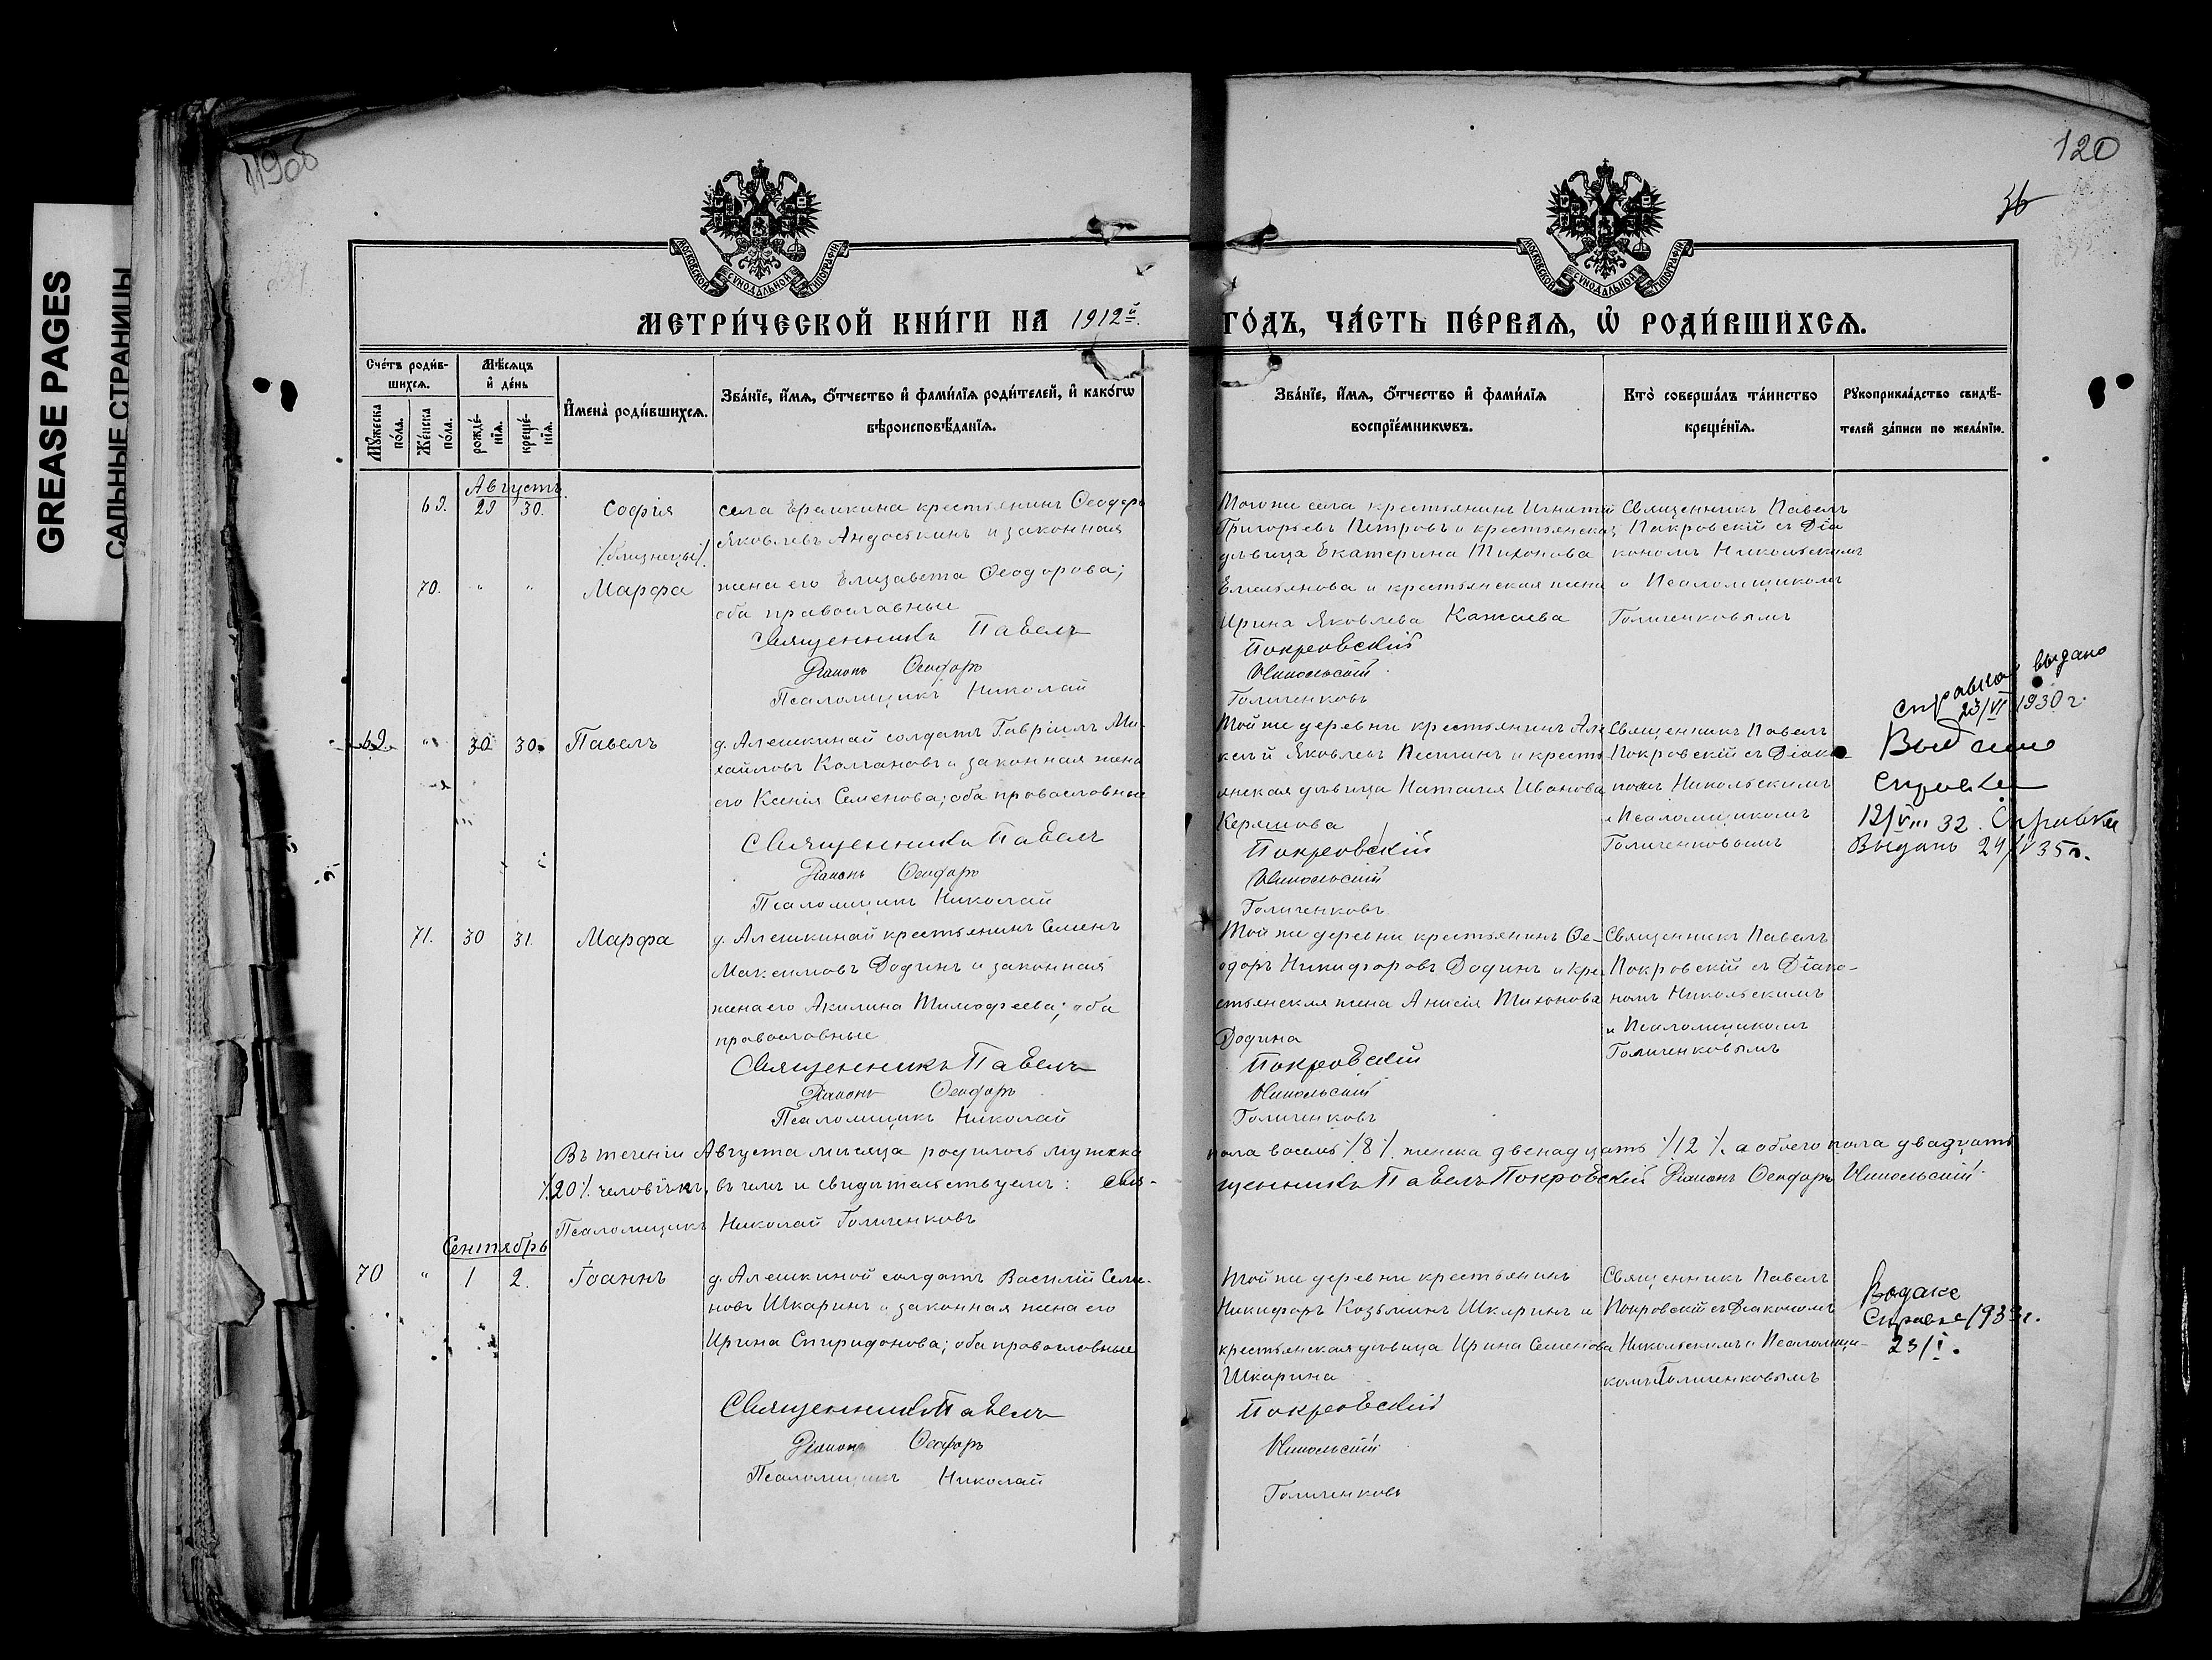 GREASE PAGES
САЛЬНЫЕ СТРАНИЦЫ
120
36
МОСКОВСКОЙ СѴНОДАЛЬНОЙ ТИПОГРАФІИ
МОСКОВСКОЙ СѴНОДАЛЬНОЙ ТИПОГРАФІИ
МЕТРИ́ЧЕСКОЙ КНИ́ГИ НА 1912й ГО́ДЪ, ЧА́СТЬ ПЕ́РВАѦ, Ѡ҆ РОДИ́ВШИХСѦ.
Сче́тъ роди́в-
шихсѧ.
Мꙋ́жеска по́ла.
Же́нска по́ла.
Мѣ́сѧцъ
и҆ де́нь
рожде́-
нїѧ.
креще́-
нїѧ.
И҆мена̀ роди́вшихсѧ.
Зва́нїе, и҆́мѧ, ѻ҆́тчество и҆ фами́лїѧ роди́телей, и҆ како́гѡ
вѣроисповѣ́данїѧ.
Зва́нїе, и҆́мѧ, ѻ҆́тчество и҆ фами́лїѧ
воспрїе́мникѡвъ.
Кто̀ соверша́лъ та́инство
креще́нїѧ.
Рꙋкоприкла́дство свидѣ́-
телей за́писи по жела́нїю.
Августъ.
69. 29 30. Софія
/близнецы/
70. " " Марфа
села Ерёмкина крестьянинъ Ѳеодоръ
Яковлевъ Андоськинъ и законная
жена его Елизавета Ѳеодорова;
оба православные
Священникъ Павелъ
Діаконъ Ѳеодоръ
Псаломщикъ Николай
Того же села крестьянинъ Игнатій
Григорьевъ Петровъ и крестьянская
дѣвица Екатерина Тихонова
Емельянова и крестьянская жена
Ирина Яковлева Катаева
Покровскій
Никольскій
Голиченковъ
Священникъ Павелъ
Покровскій съ Діа
кономъ Никольскимъ
и Псаломщикомъ
Голиченковымъ
69. " 30 30. Павелъ
д. Алешкиной солдатъ Гавріилъ Ми-
хайловъ Колгановъ и законная жена
его Ксенія Семенова; оба православные
Священникъ Павелъ
Діаконъ Ѳеодоръ
Псаломщикъ Николай
Той же деревни крестьянинъ Але
ксѣй Яковлевъ Пестинъ и кресть
янская дѣвица Наталія Иванова
Керяшова
Покровскій
Никольскій
Голиченковъ
Священникъ Павелъ
Покровскій съ Діако-
номъ Никольскимъ
и Псаломщикомъ
Голиченковымъ
справка выдано
23/VI 1930 г.
Выдано
справка
12/VIII 32. Справка
Выдано 24/V 35 г.
71. 30 31. Марфа
д. Алешкиной крестьянинъ Семенъ
Максимовъ Додинъ и законная
жена его Акилина Тимофеева; оба
православные
Священникъ Павелъ
Діаконъ Ѳеодоръ
Псаломщикъ Николай
Той же деревни крестьянинъ Ѳе-
одоръ Никифоровъ Додинъ и кре-
стьянская жена Анисія Тихонова
Додина
Покровскій
Никольскій
Голиченковъ
Священникъ Павелъ
Покровскій съ Діако-
номъ Никольскимъ
и Псаломщикомъ
Голиченковымъ
Въ теченіи Августа мѣсяца родилось мужска пола восемь /8/. женска двенадцать /12/. а обоего пола двадцать
/20/. человѣкъ, въ чемъ и свидѣтельствуемъ: Свя-щенникъ Павелъ Покровскій Діаконъ Ѳеодоръ Никольскій
Псаломщикъ Николай Голиченковъ
Сентябрь
70 " 1 2. Іоаннъ
д. Алешкиной солдатъ Василій Семе-
новъ Шкаринъ и законная жена его
Ирина Спиридонова; оба православные
Священникъ Павелъ
Діаконъ Ѳеодоръ
Псаломщикъ Николай
Той же деревни крестьянинъ
Никифоръ Козьминъ Шкаринъ и
крестьянская дѣвица Ирина Семенова
Шкарина
Покровскій
Никольскій
Голиченковъ
Священникъ Павелъ
Покровскій съ Діакономъ
Никольскимъ и Псаломщи-
комъ Голиченковымъ
Выдана
Справка 1933 г.
23/I.